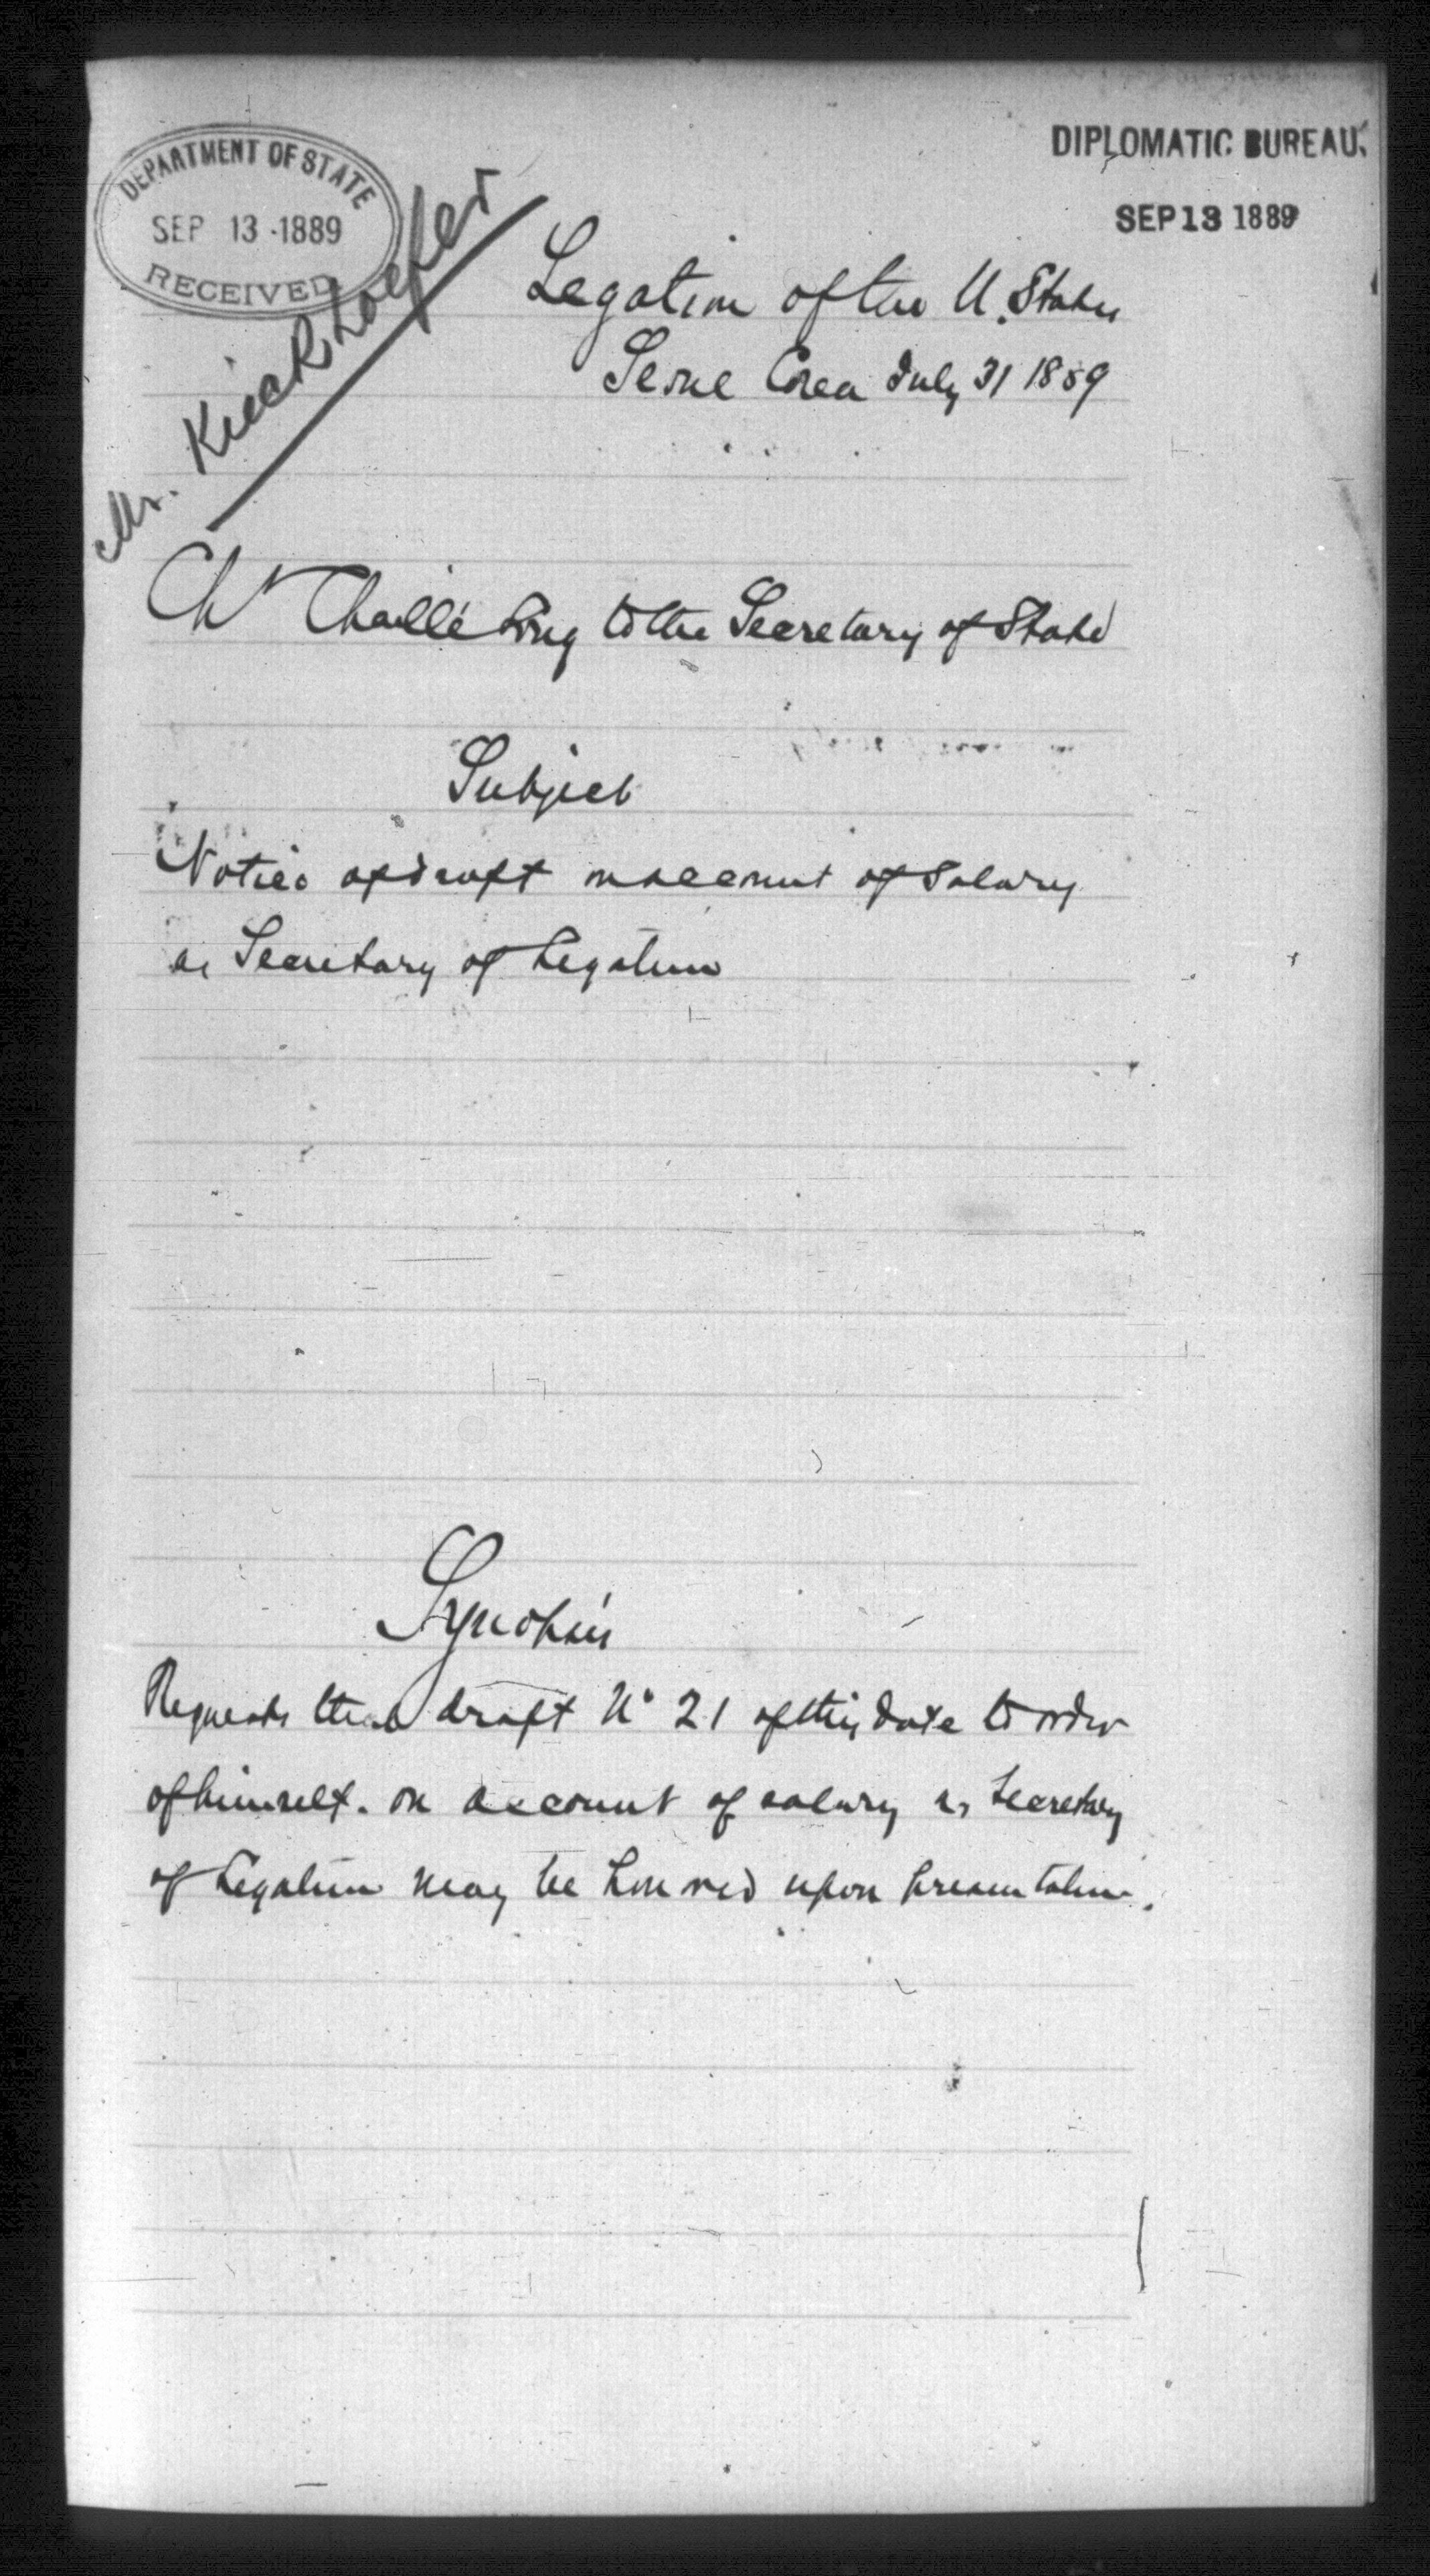 DEPARTMENT OF STATE
SEP 13 1889
RECEIVED
DIPLOMATIC BUREAU.
SEP 13 1889
Mr. Kieckhoefer
Legation of the U. States
Seoul Corea July 31 1889
Mr Chaillé Long to the Secretary of State
Subject
Notice of draft on account of Salary
as Secretary of Legation
Synopsis
Requests that draft No 21 of this date to order
of himself. on account of salary as Secretary
of Legation may be honored upon presentation.